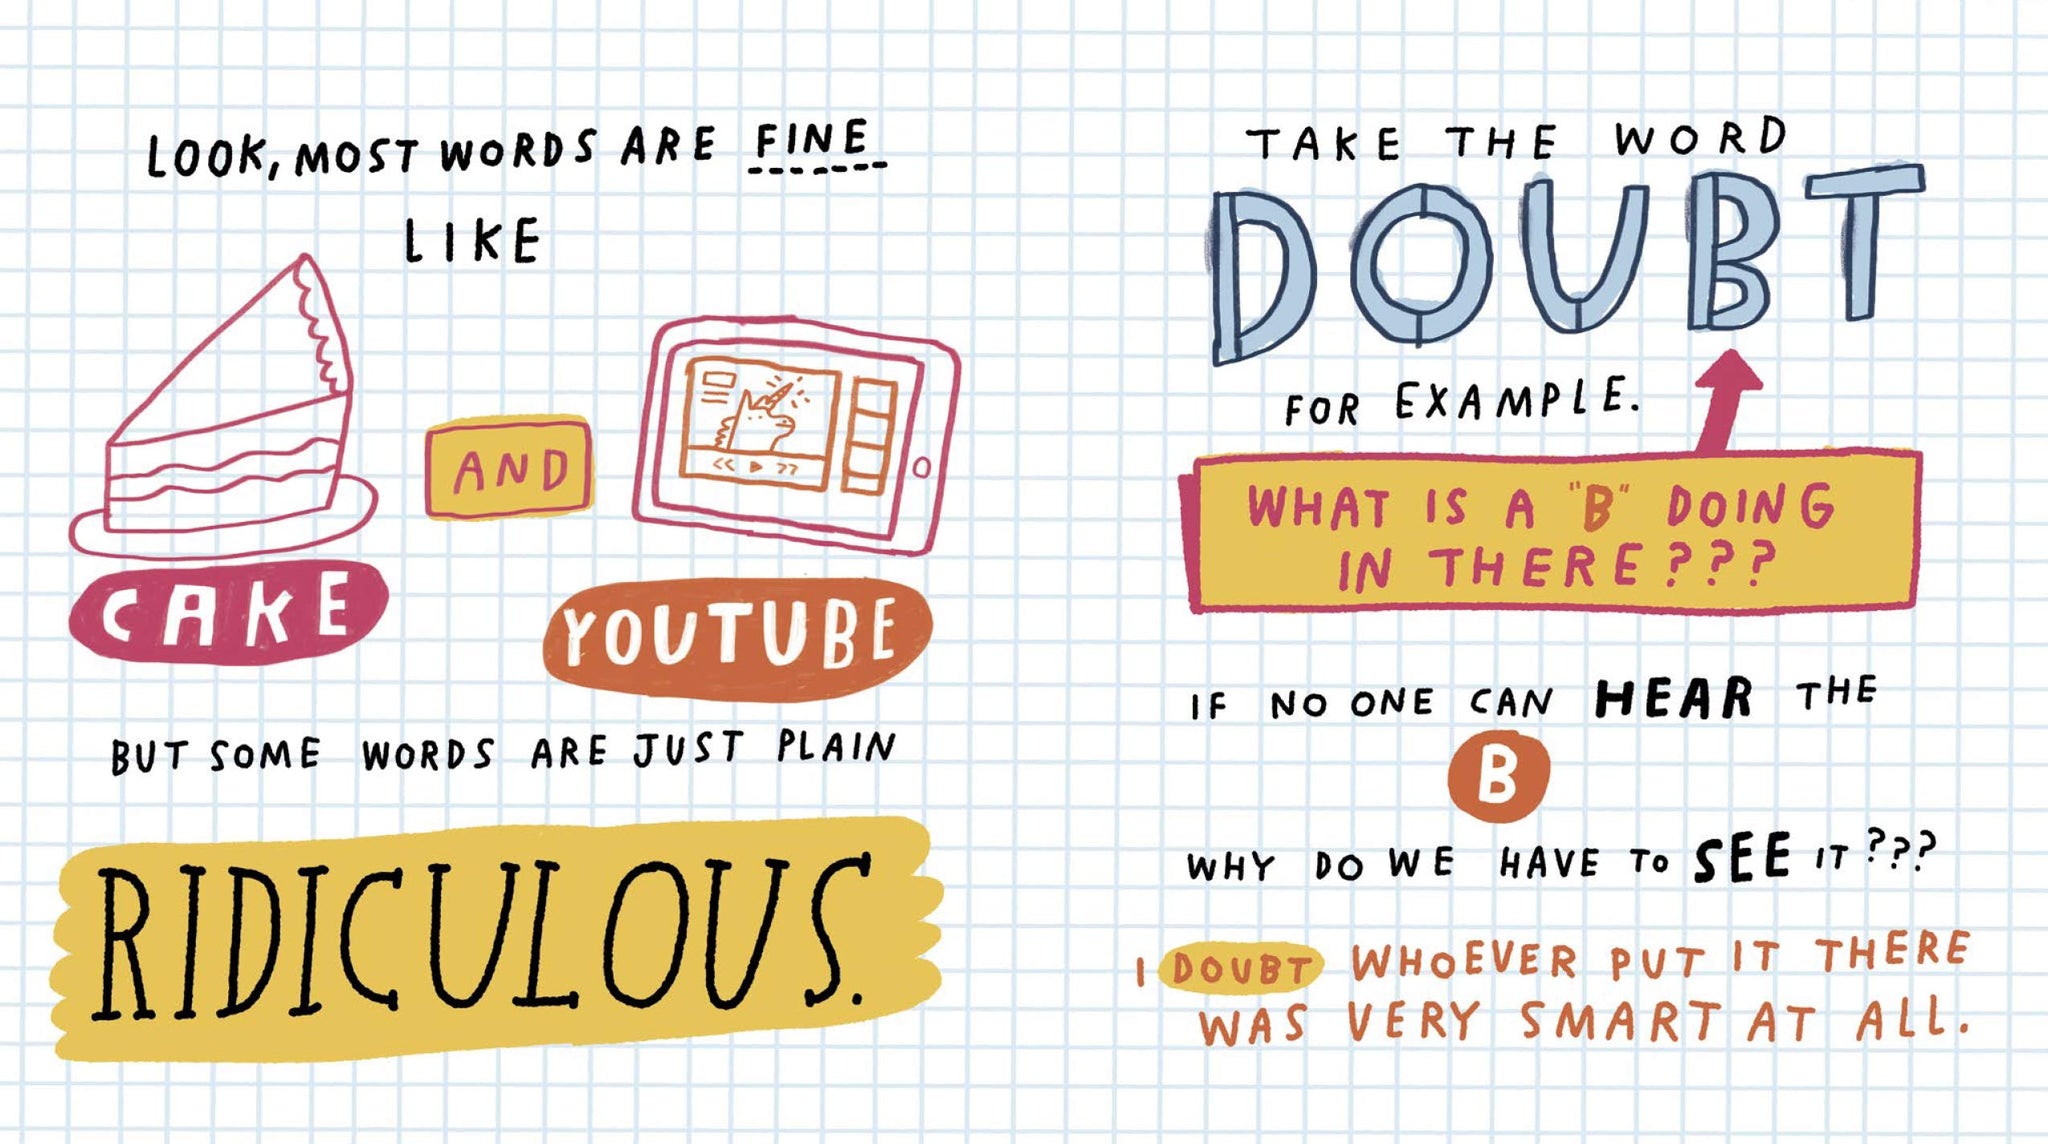 LOOK, MOST WORDS ARE FINE
LIKE
AND
CAKE
YOUTUBE
BUT SOME WORDS ARE JUST PLAIN
RIDICULOUS.
TAKE THE WORD
DOUBT
FOR EXAMPLE.
WHAT IS A "B" DOING
IN THERE???
IF NO ONE CAN HEAR THE
B
WHY DO WE HAVE TO SEE IT???
I DOUBT WHOEVER PUT IT THERE
WAS VERY SMART AT ALL.